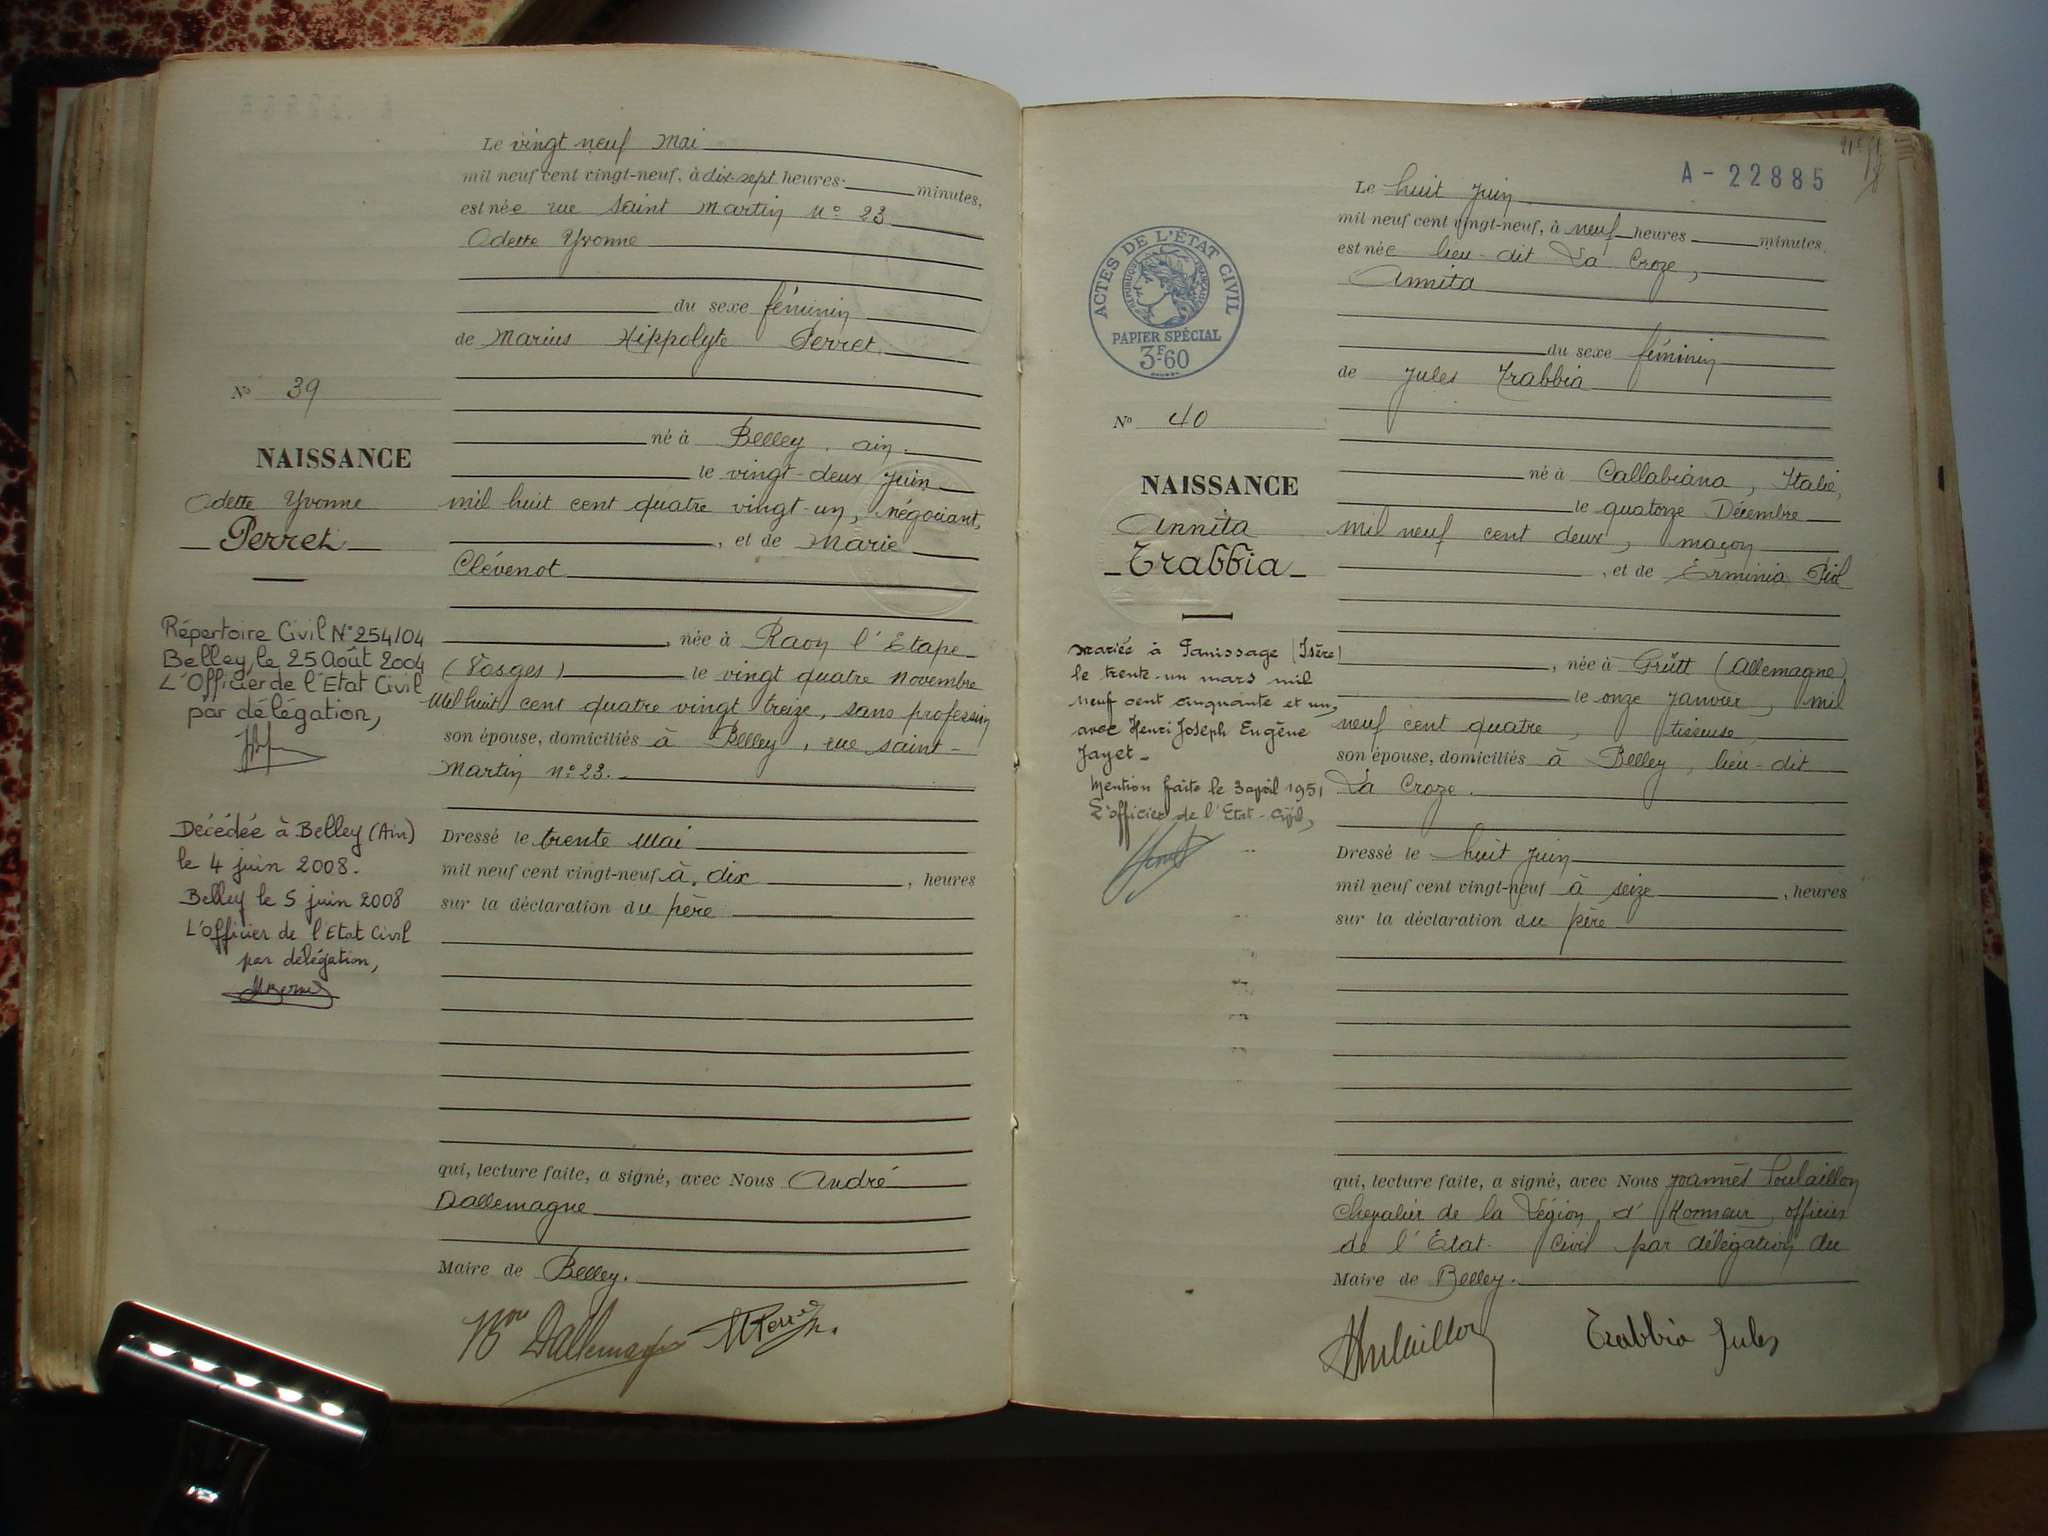 Le vingt neuf Mai
mil neuf cent vingt-neuf, à dix-sept heures minutes,
est née rue Saint Martin N° 23
Odette Yvonne
du sexe féminin
de Marius Hippolyte Perret
N° 39
né à Belley, ain.
NAISSANCE
le vingt-deux juin
Odette Yvonne
mil huit cent quatre vingt-un, négociant,
Perret
, et de Marie
Clévenot
Répertoire Civil N° 254/04
Belley, le 25 Août 2004
L'Officier de l'Etat Civil
par délégation,
, née à Raon l'Etape
(Vosges) le vingt quatre Novembre
Mil huit cent quatre vingt treize, sans profession
son épouse, domiciliés à Belley, rue Saint-
Martin n° 23.
Décédée à Belley (Ain)
le 4 juin 2008.
Belley le 5 juin 2008
L'Officier de l'Etat Civil
par délégation,
Dressé le trente Mai
mil neuf cent vingt-neuf à dix , heures
sur la déclaration du père
qui, lecture faite, a signé, avec Nous André
Dallemagne
Maire de Belley.
Dallemagne
A - 22885
Le huit juin
mil neuf cent vingt-neuf, à neuf heures minutes.
est née lieu-dit La Croze,
Annita
ACTES DE L'ÉTAT CIVIL
RÉPUBLIQUE FRANÇAISE
PAPIER SPÉCIAL
3F60
du sexe féminin
de Jules Trabbia
N° 40
né à Callabiana, Italie,
NAISSANCE
le quatorze Décembre
Annita
mil neuf cent deux, maçon
Trabbia
, et de Erminia Piol
Mariée à Panissage (Isère)
le trente-un mars mil
neuf cent cinquante et un,
avec Henri Joseph Eugène
Jayet -
Mention faite le 3 april 1951
L'officier de l'Etat-Civil,
, née à Grütt (Allemagne)
le onze Janvier, mil
neuf cent quatre, tisseuse,
son épouse, domiciliés à Belley, lieu-dit
La Croze.
Dressé le huit juin
mil neuf cent vingt-neuf à seize , heures
sur la déclaration du père
qui, lecture faite, a signé, avec Nous Joannès Soulaillon
Chevalier de la Légion d'Honneur, officier
de l'Etat-Civil par délégation du
Maire de Belley.
Trabbia Jules